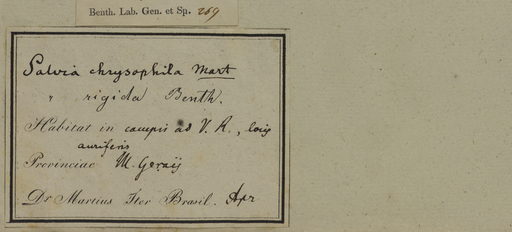 Benth. Lab. Gen. et Sp. 269
Salvia chrysophila Mart
" rigida Benth.
Habitat in campis ad V. R., locis
auriferis
Provinciae M. Geraës
Dr Martius Iter Brasil. Apr